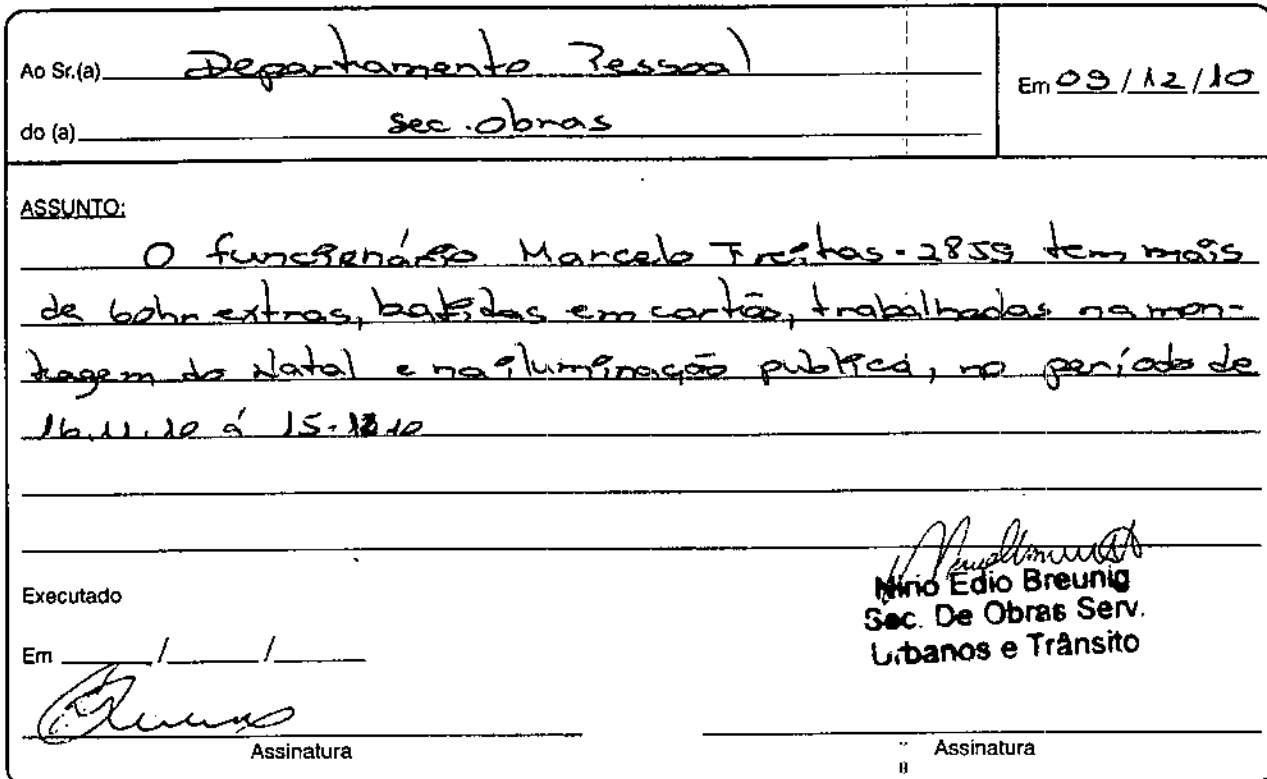 Ao Sr.(a) Departamento Pessoal
Em 09/12/10
do (a) Sec. Obras
ASSUNTO:
O funcionário Marcelo Freitas - 2859 tem mais
de 60hr extras, batidas em cartão, trabalhadas na mon-
tagem do Natal e na iluminação publica, no período de
16.11.10 á 15.12.10
Executado
Em ____/____/____
Nirio Edio Breunig
Sec. De Obras Serv.
Urbanos e Trânsito
Assinatura
Assinatura